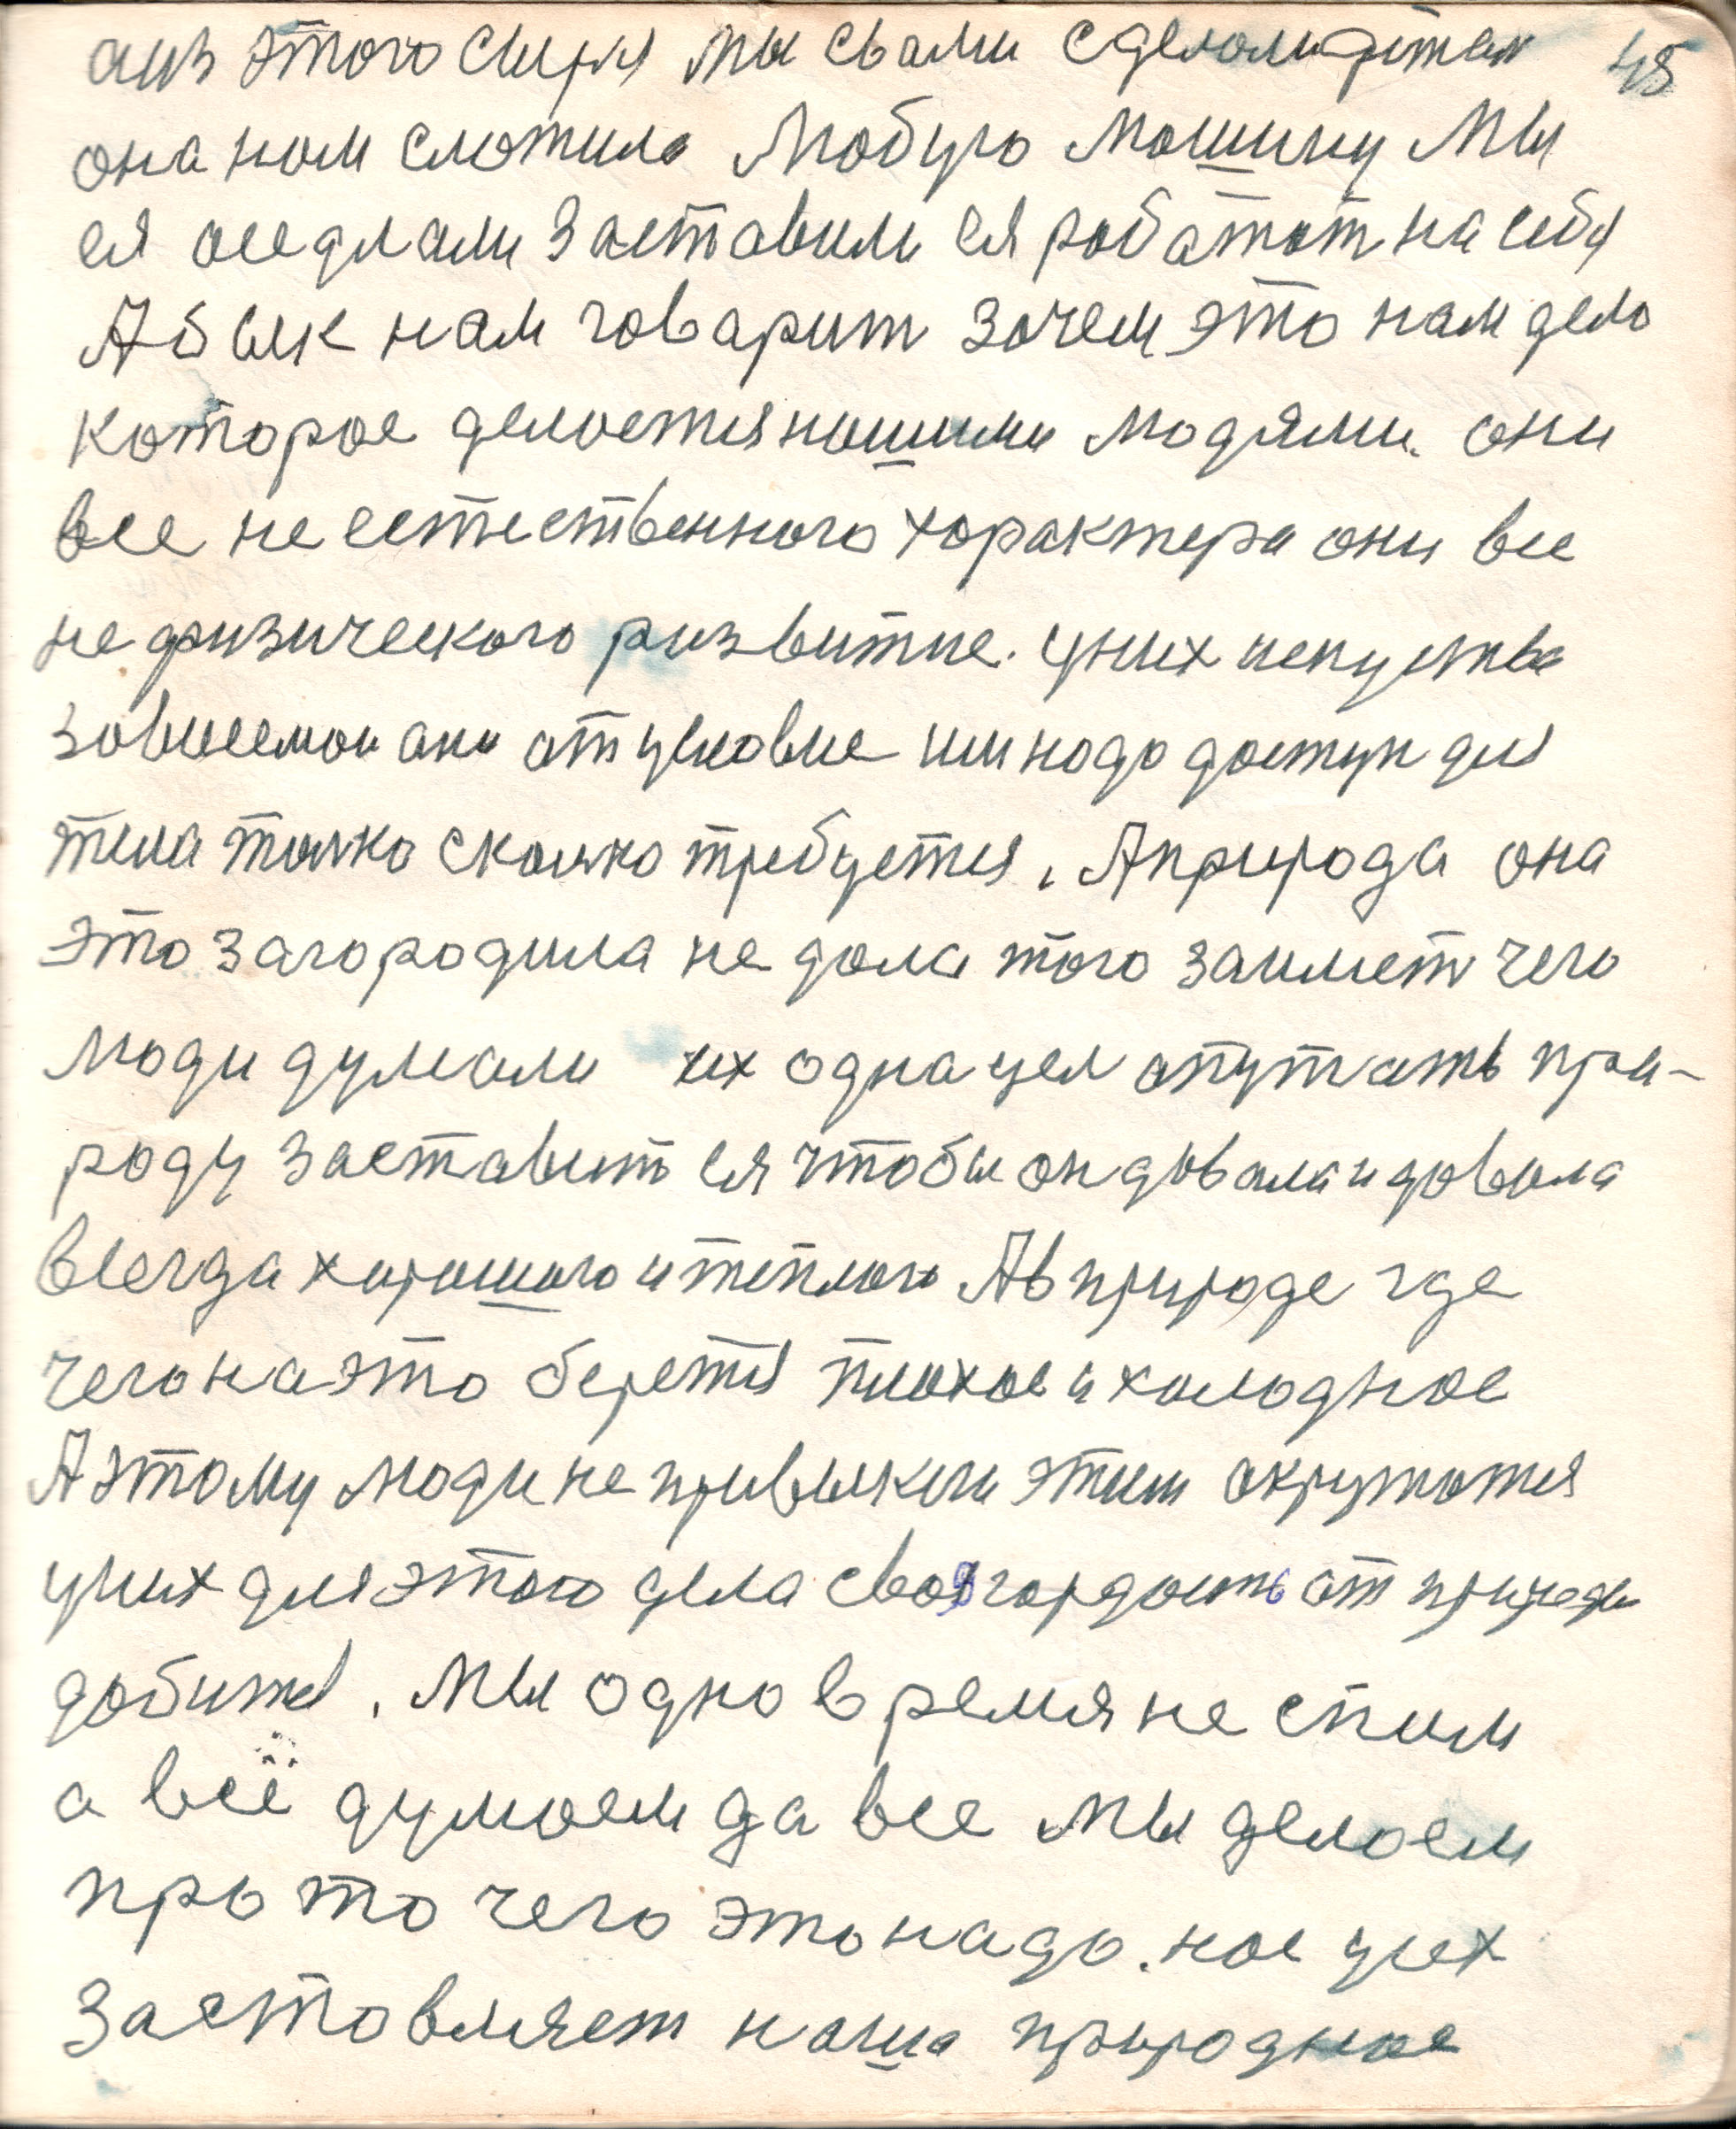 аиз этого сыря мы свами сделали детал 45
она нам сложила любую машину Мы
ея оседлали заставили ея работат на себя
А бык нам говарит зачем это нам дело
которое делается нашими людями. они
все не естественного характера они все
не физического развитие. уних искуства
зовисемои они от условие им надо доступ для
тела толко сколко требуется. А природа она
это загородила не дала того заимет чего
люди думали их одна цел опутать при-
роду заставит ея чтобы он давала и довала
всегда хорошого и теплого А в природе где
чего на это берется плохое и холодное
А этому люди не привыкли этим окружатся
уних для этого дела своя гордость от природы
добится. Мы одно время не спим
а всё думаем да все мы делаем
про то чего это надо. нас усех
заставляет наша природное